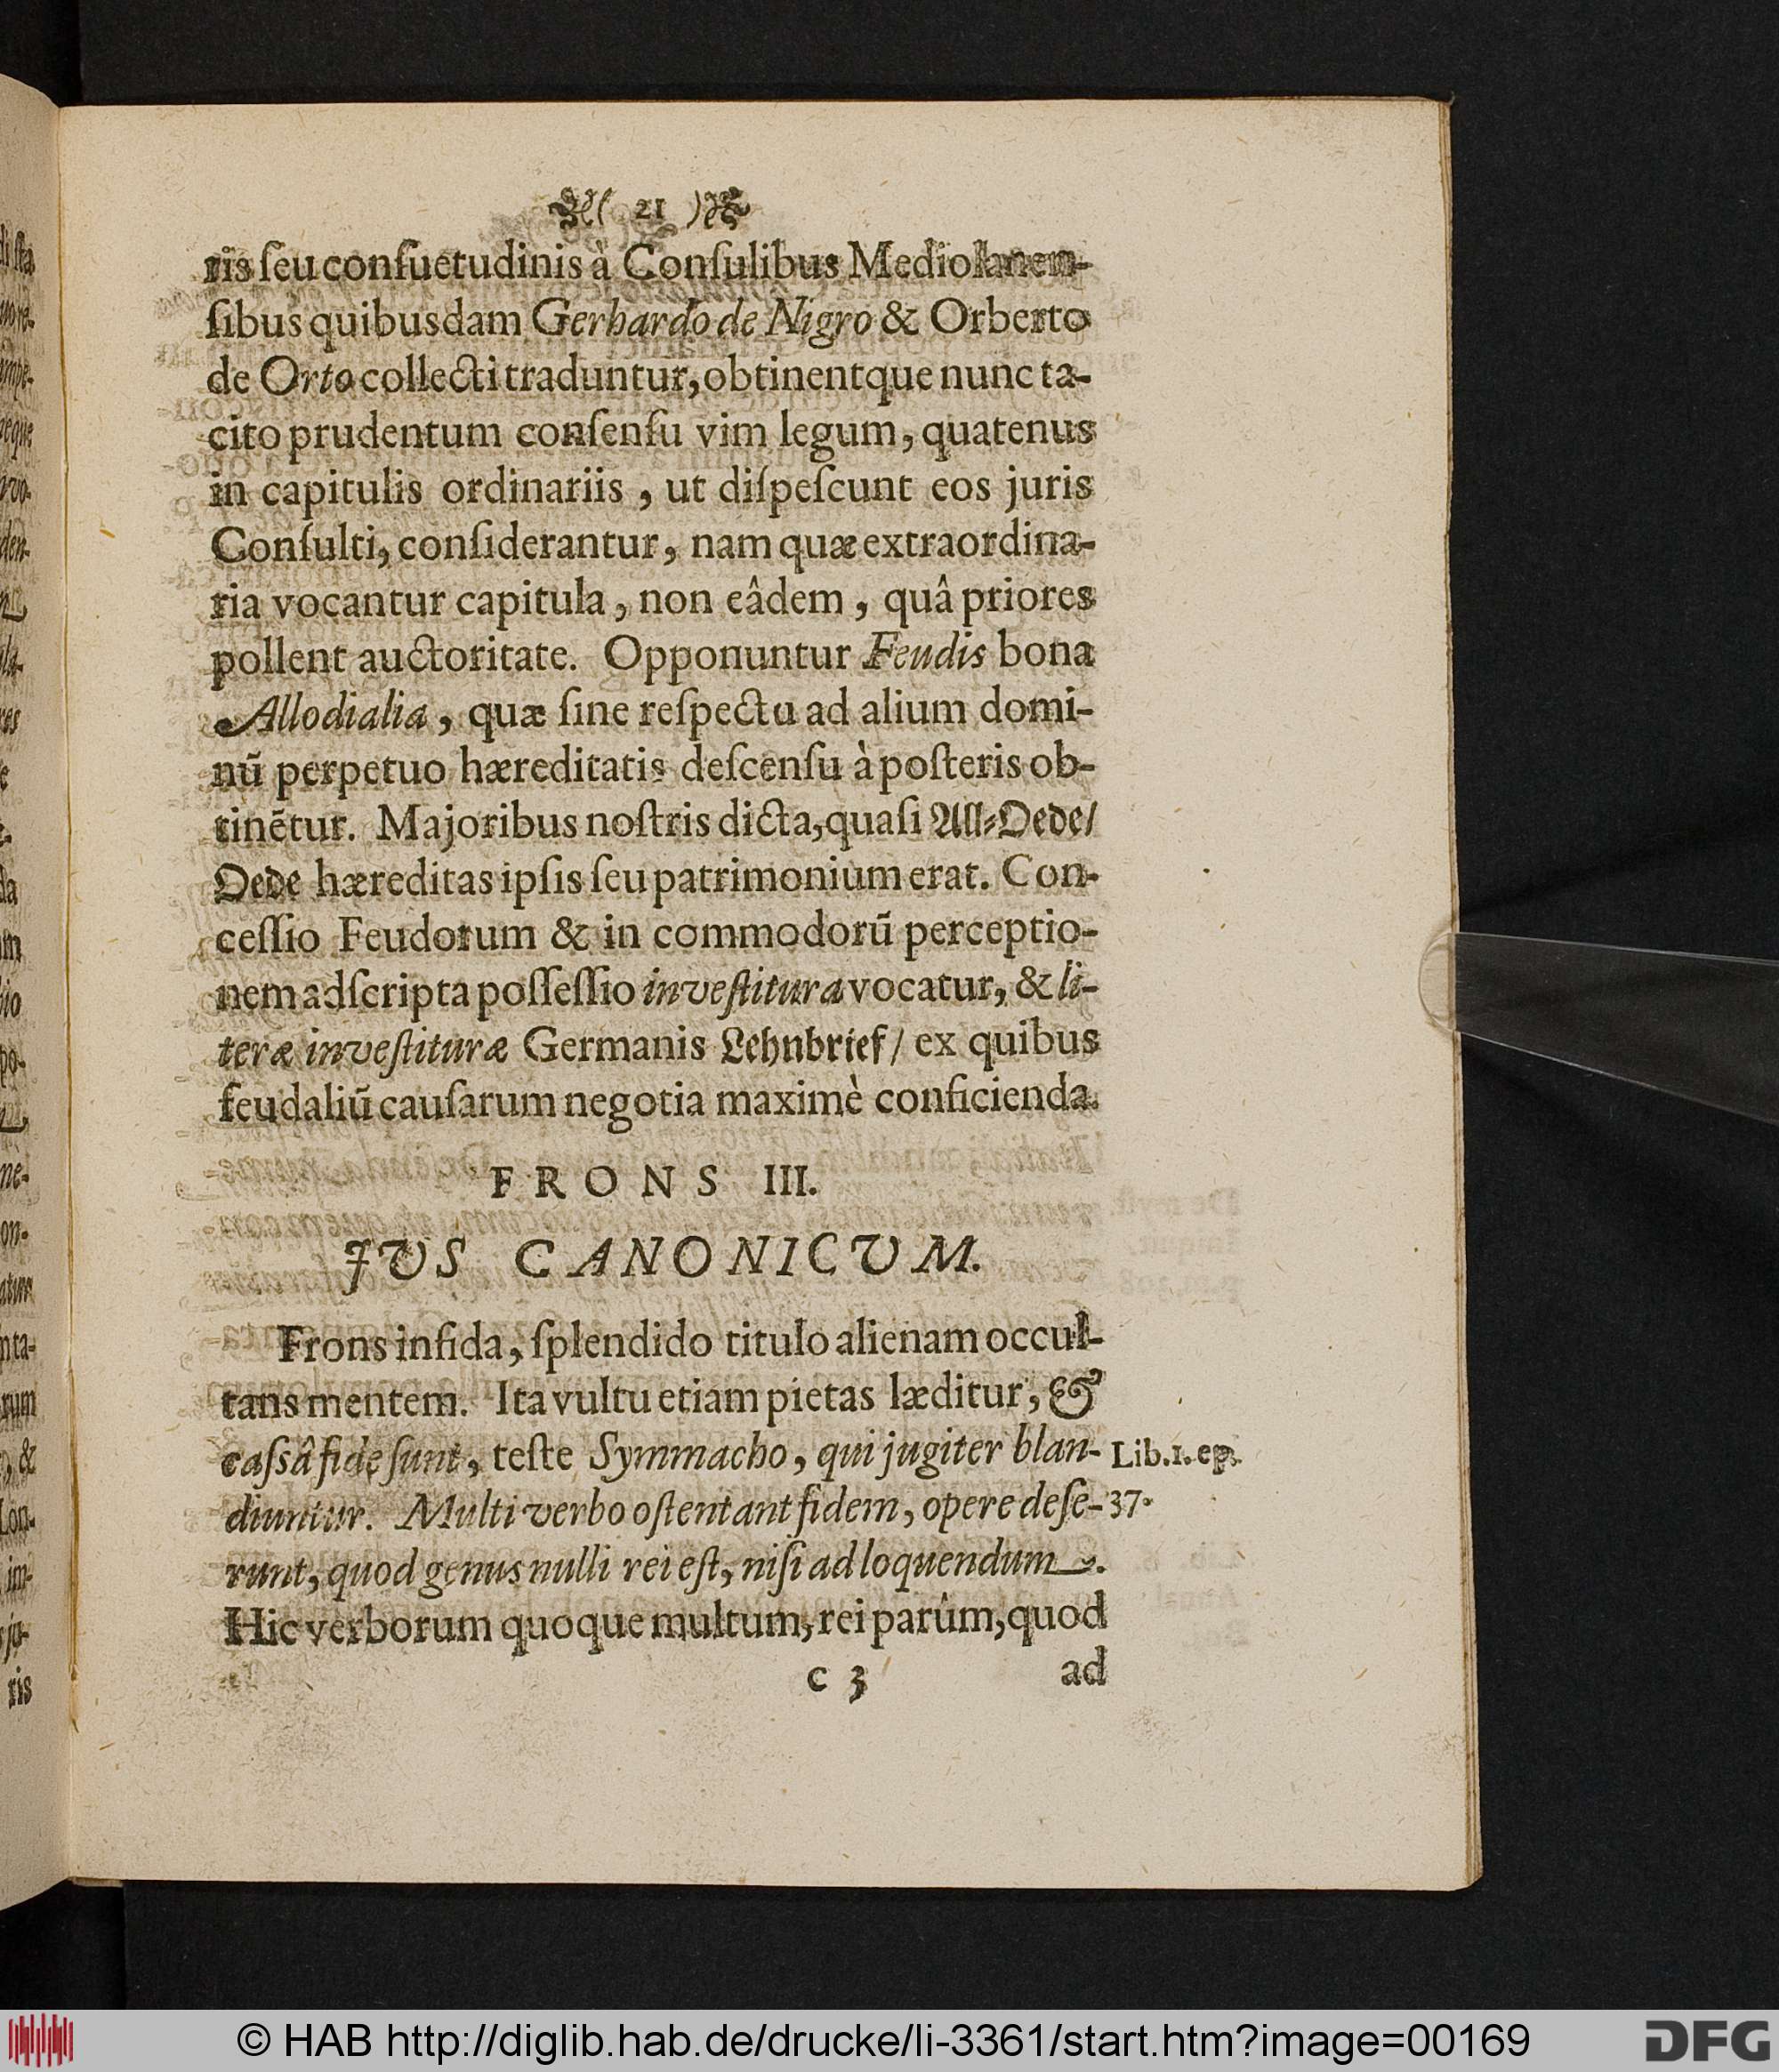 ( 21 )
ris ſeu conſuetudinis à Conſulibus Mediolanen-
ſibus quibusdam Gerhardo de Nigro & Orberto
de Orto collecti traduntur, obtinentque nunc ta-
cito prudentum conſenſu vim legum, quatenus
in capitulis ordinariis, ut diſpeſcunt eos juris
Conſulti, conſiderantur, nam quæ extraordina-
ria vocantur capitula, non eâdem, quâ priores
pollent auctoritate. Opponuntur Feudis bona
Allodialia, quæ ſine reſpectu ad alium domi-
nũ perpetuo hæreditatis deſcenſu à poſteris ob-
tinẽtur. Majoribus noſtris dicta, quaſi All-Oede/
Oede hæreditas ipſis ſeu patrimonium erat. Con-
ceſſio Feudorum & in commodorũ perceptio-
nem adſcripta poſſeſſio inveſtitura vocatur, & li-
teræ inveſtituræ Germanis Lehnbrief/ ex quibus
feudaliũ cauſarum negotia maximè conficienda.
FRONS III.
JUS CANONICUM.
Frons infida, ſplendido titulo alienam occul-
tans mentem. Ita vultu etiam pietas læditur, &
caſsâ fide ſunt, teſte Symmacho, qui jugiter blan-
Lib. 1. ep.
diuntur. Multi verbo oſtentant fidem, opere deſe-
37.
runt, quod genus nulli rei eſt, niſi ad loquendum.
Hic verborum quoque multum, rei parùm, quod
c 3 ad
di ſta
mpe-
eque
den-
la-
res
e
da
m
io
po-
ne-
on-
nta-
rum
, &
lon-
im-
ju-
ris
© HAB http://diglib.hab.de/drucke/li-3361/start.htm?image=00169
DFG